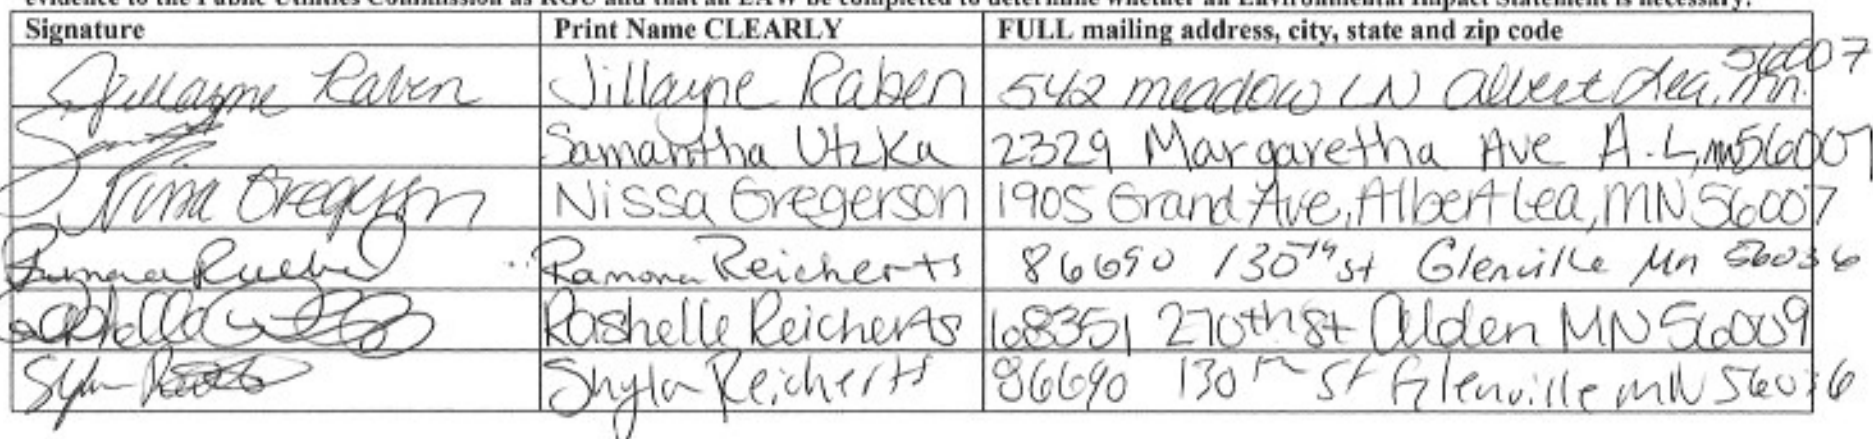 evidence to the Public Utilities Commission as RGU and that an EAW be completed to determine whether an Environmental Impact Statement is necessary.
Signature Print Name CLEARLY FULL mailing address, city, state and zip code
Jillayne Raben Jillayne Raben 542 meadow LN Albert Lea, Mn. 56007
Samantha Utzka 2329 Margaretha Ave A.L, mn 56007
Nissa Gregerson Nissa Gregerson 1905 Grand Ave, Albert Lea, MN 56007
Ramona Reicherts 86690 130th st Glenville Mn 56036
Rashelle Reicherts 68351 270th St Alden MN 56009
Shyla Reicherts 86690 130th St Glenville MN 56036